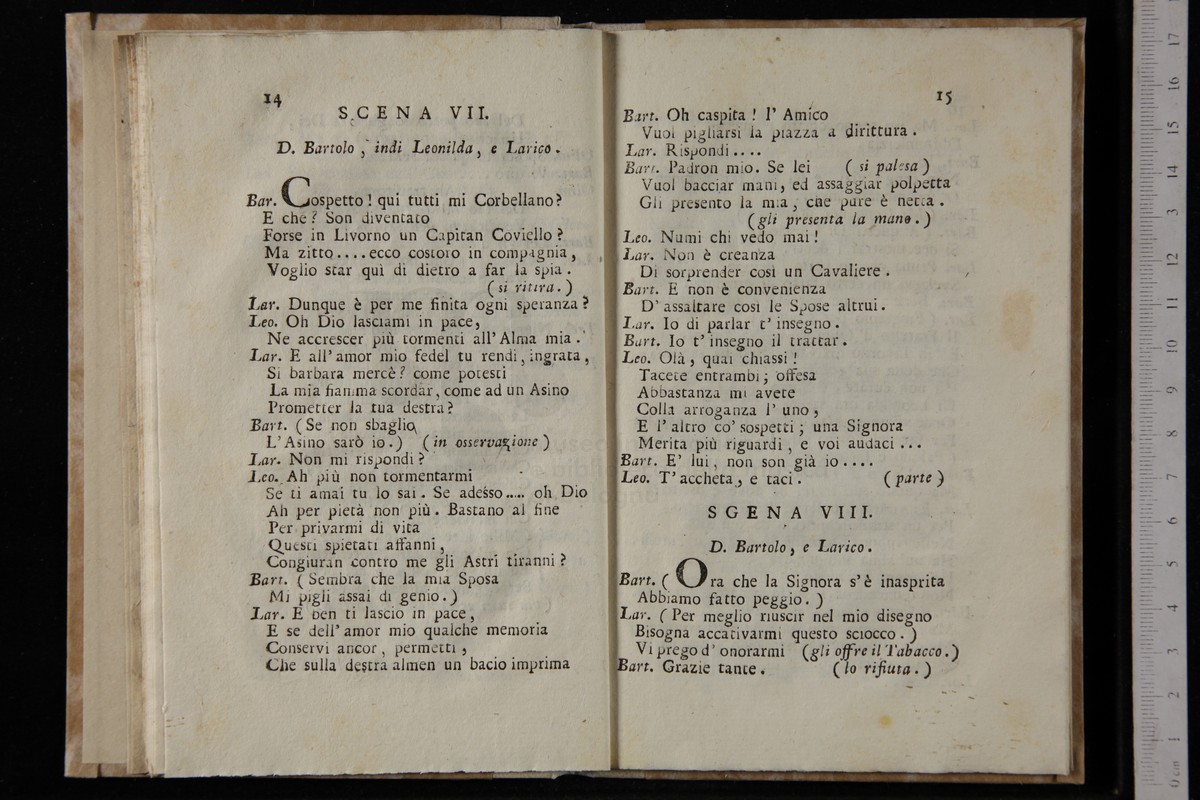 14
SCENA VII.
D. Bartolo, indi Leonilda, e Larico.
Bar. Cospetto! qui tutti mi Corbellano?
E che? Son diventato
Forse in Livorno un Capitan Coviello?
Ma zitto.... ecco costoro in compagnia,
Voglio star quì di dietro a far la spia.
(si ritira.)
Lar. Dunque è per me finita ogni speranza?
Leo. Oh Dio lasciami in pace,
Ne accrescer più tormenti all' Alma mia.
Lar. E all' amor mio fedel tu rendi, ingrata,
Si barbara mercè? come potesti
La mia fiamma scordar, come ad un Asino
Prometter la tua destra?
Bart. (Se non sbaglio,
L'Asino sarò io.) (in osservazione)
Lar. Non mi rispondi?
Leo. Ah più non tormentarmi
Se ti amai tu lo sai. Se adesso..... oh Dio
Ah per pietà non più. Bastano al fine
Per privarmi di vita
Questi spietati affanni,
Congiuran contro me gli Astri tiranni?
Bart. (Sembra che la mia Sposa
Mi pigli assai di genio.)
Lar. E ben ti lascio in pace,
E se dell' amor mio qualche memoria
Conservi ancor, permetti,
Che sulla destra almen un bacio imprima
15
Bart. Oh caspita! l' Amico
Vuol pigliarsi la piazza a dirittura.
Lar. Rispondi....
Bart. Padron mio. Se lei (si palesa)
Vuol bacciar mani, ed assaggiar polpetta
Gli presento la mia, che pure è netta.
(gli presenta la mano.)
Leo. Numi chi vedo mai!
Lar. Non è creanza
Di sorprender così un Cavaliere.
Bart. E non è convenienza
D' assaltare così le Spose altrui.
Lar. Io di parlar t' insegno.
Bart. Io t' insegno il trattar.
Leo. Olà, quai chiassi!
Tacete entrambi; offesa
Abbastanza mi avete
Colla arroganza l' uno,
E l' altro co' sospetti; una Signora
Merita più riguardi, e voi audaci...
Bart. E' lui, non son già io....
Leo. T' accheta, e taci. (parte)
SGENA VIII.
D. Bartolo, e Larico.
Bart. (Ora che la Signora s'è inasprita
Abbiamo fatto peggio.)
Lar. (Per meglio riuscir nel mio disegno
Bisogna accativarmi questo sciocco.)
Vi prego d' onorarmi (gli offre il Tabacco.)
Bart. Grazie tante. (lo rifiuta.)
0 cm 1 2 3 4 5 6 7 8 9 10 11 12 13 14 15 16 17